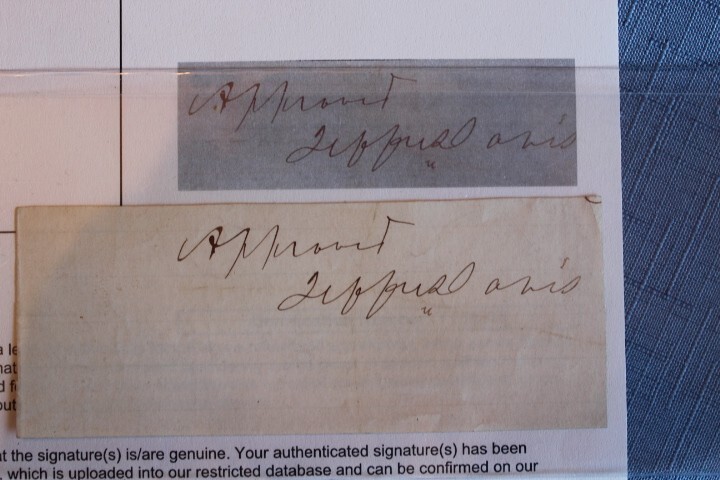 Approved
Jeffn Davis
Approved
Jeffn Davis
a le
nat
d f
out
at the signature(s) is/are genuine. Your authenticated signature(s) has been
, which is uploaded into our restricted database and can be confirmed on our